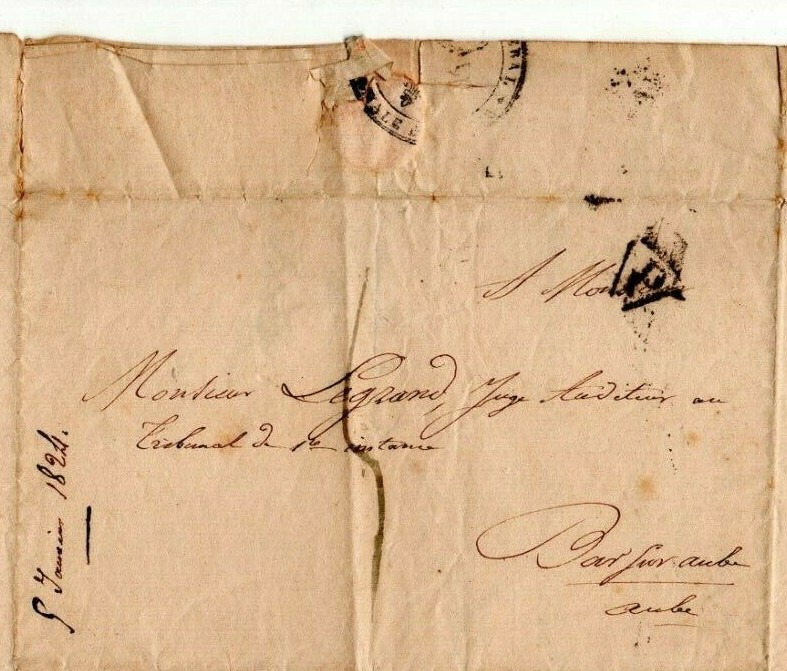 A Monsieur
Monsieur Legrand, Juge Auditeur au
Tribunal de 1re instance
Bar sur aube
aube
5 Janvier 1824.